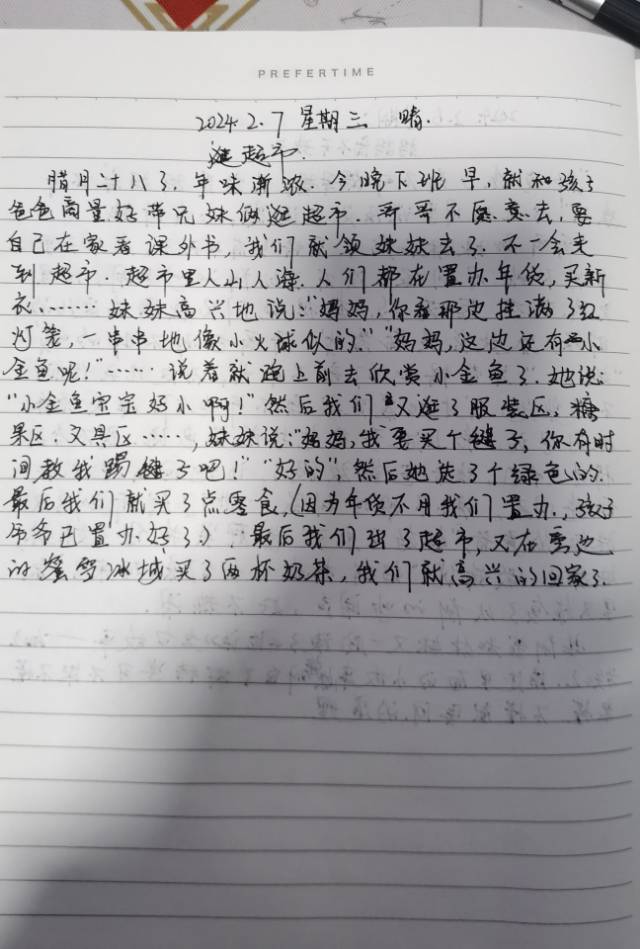 PREFERTIME
2024.2.7 星期三 晴.
逛超市.
腊月二十八了.年味渐浓.今晚下班早,就和孩子
爸爸商量好带兄妹俩逛超市.哥哥不愿意去,要
自己在家看课外书,我们就领妹妹去了.不一会来
到超市.超市里人山人海.人们都在置办年货,买新
衣.……妹妹高兴地说:“妈妈,你看那边挂满了红
灯笼,一串串地像小火球似的.”“妈妈,这边还有小
金鱼呢!”……说着就跑上前去欣赏小金鱼了.她说:
“小金鱼宝宝好小啊!”然后我们又逛了服装区,糖
果区.文具区……,妹妹说:“妈妈,我要买个毽子,你有时
间教我踢毽子吧!”“好的”,然后她选了个绿色的.
最后我们就买了点零食,(因为年货不用我们置办,孩子
爷爷已置办好了.)最后我们出了超市,又在旁边
的蜜雪冰城买了两杯奶茶,我们就高兴的回家了.